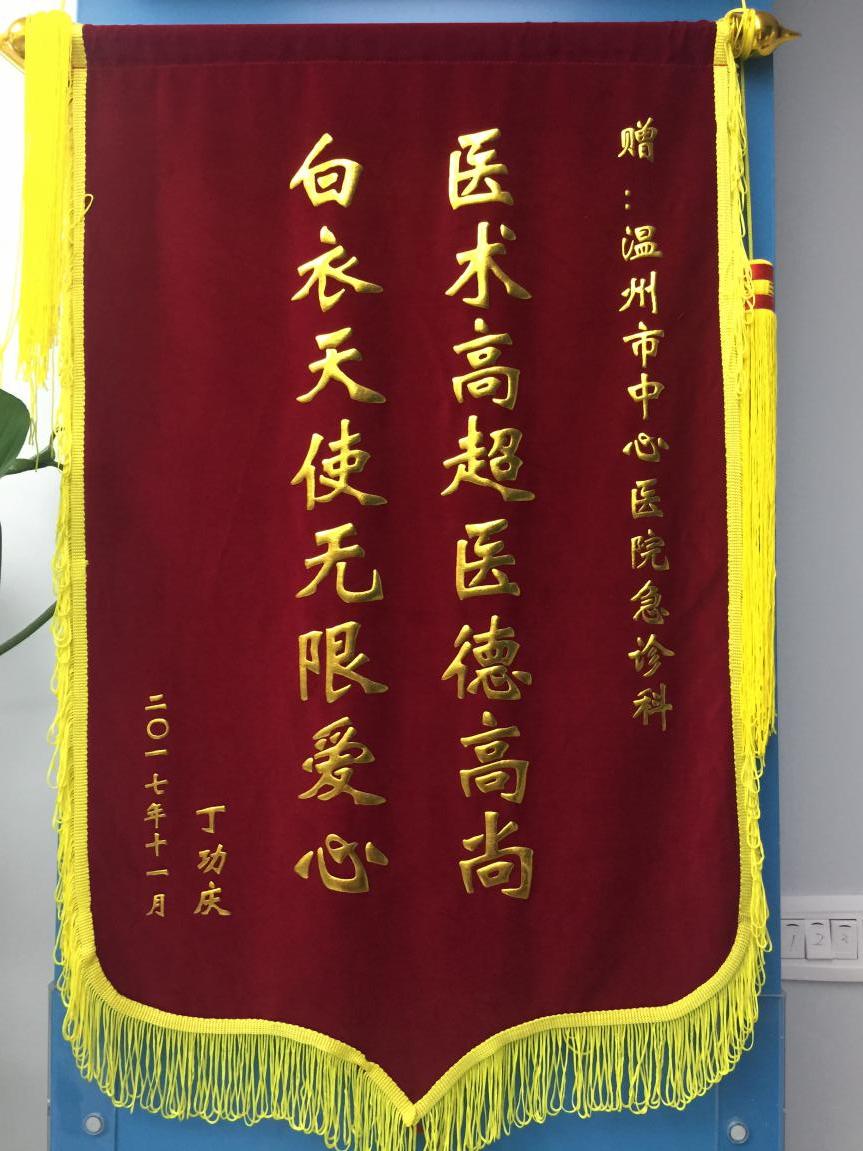 赠：温州市中心医院急诊科
医术高超医德高尚
白衣天使无限爱心
丁功庆
二〇一七年十一月
1 2 3